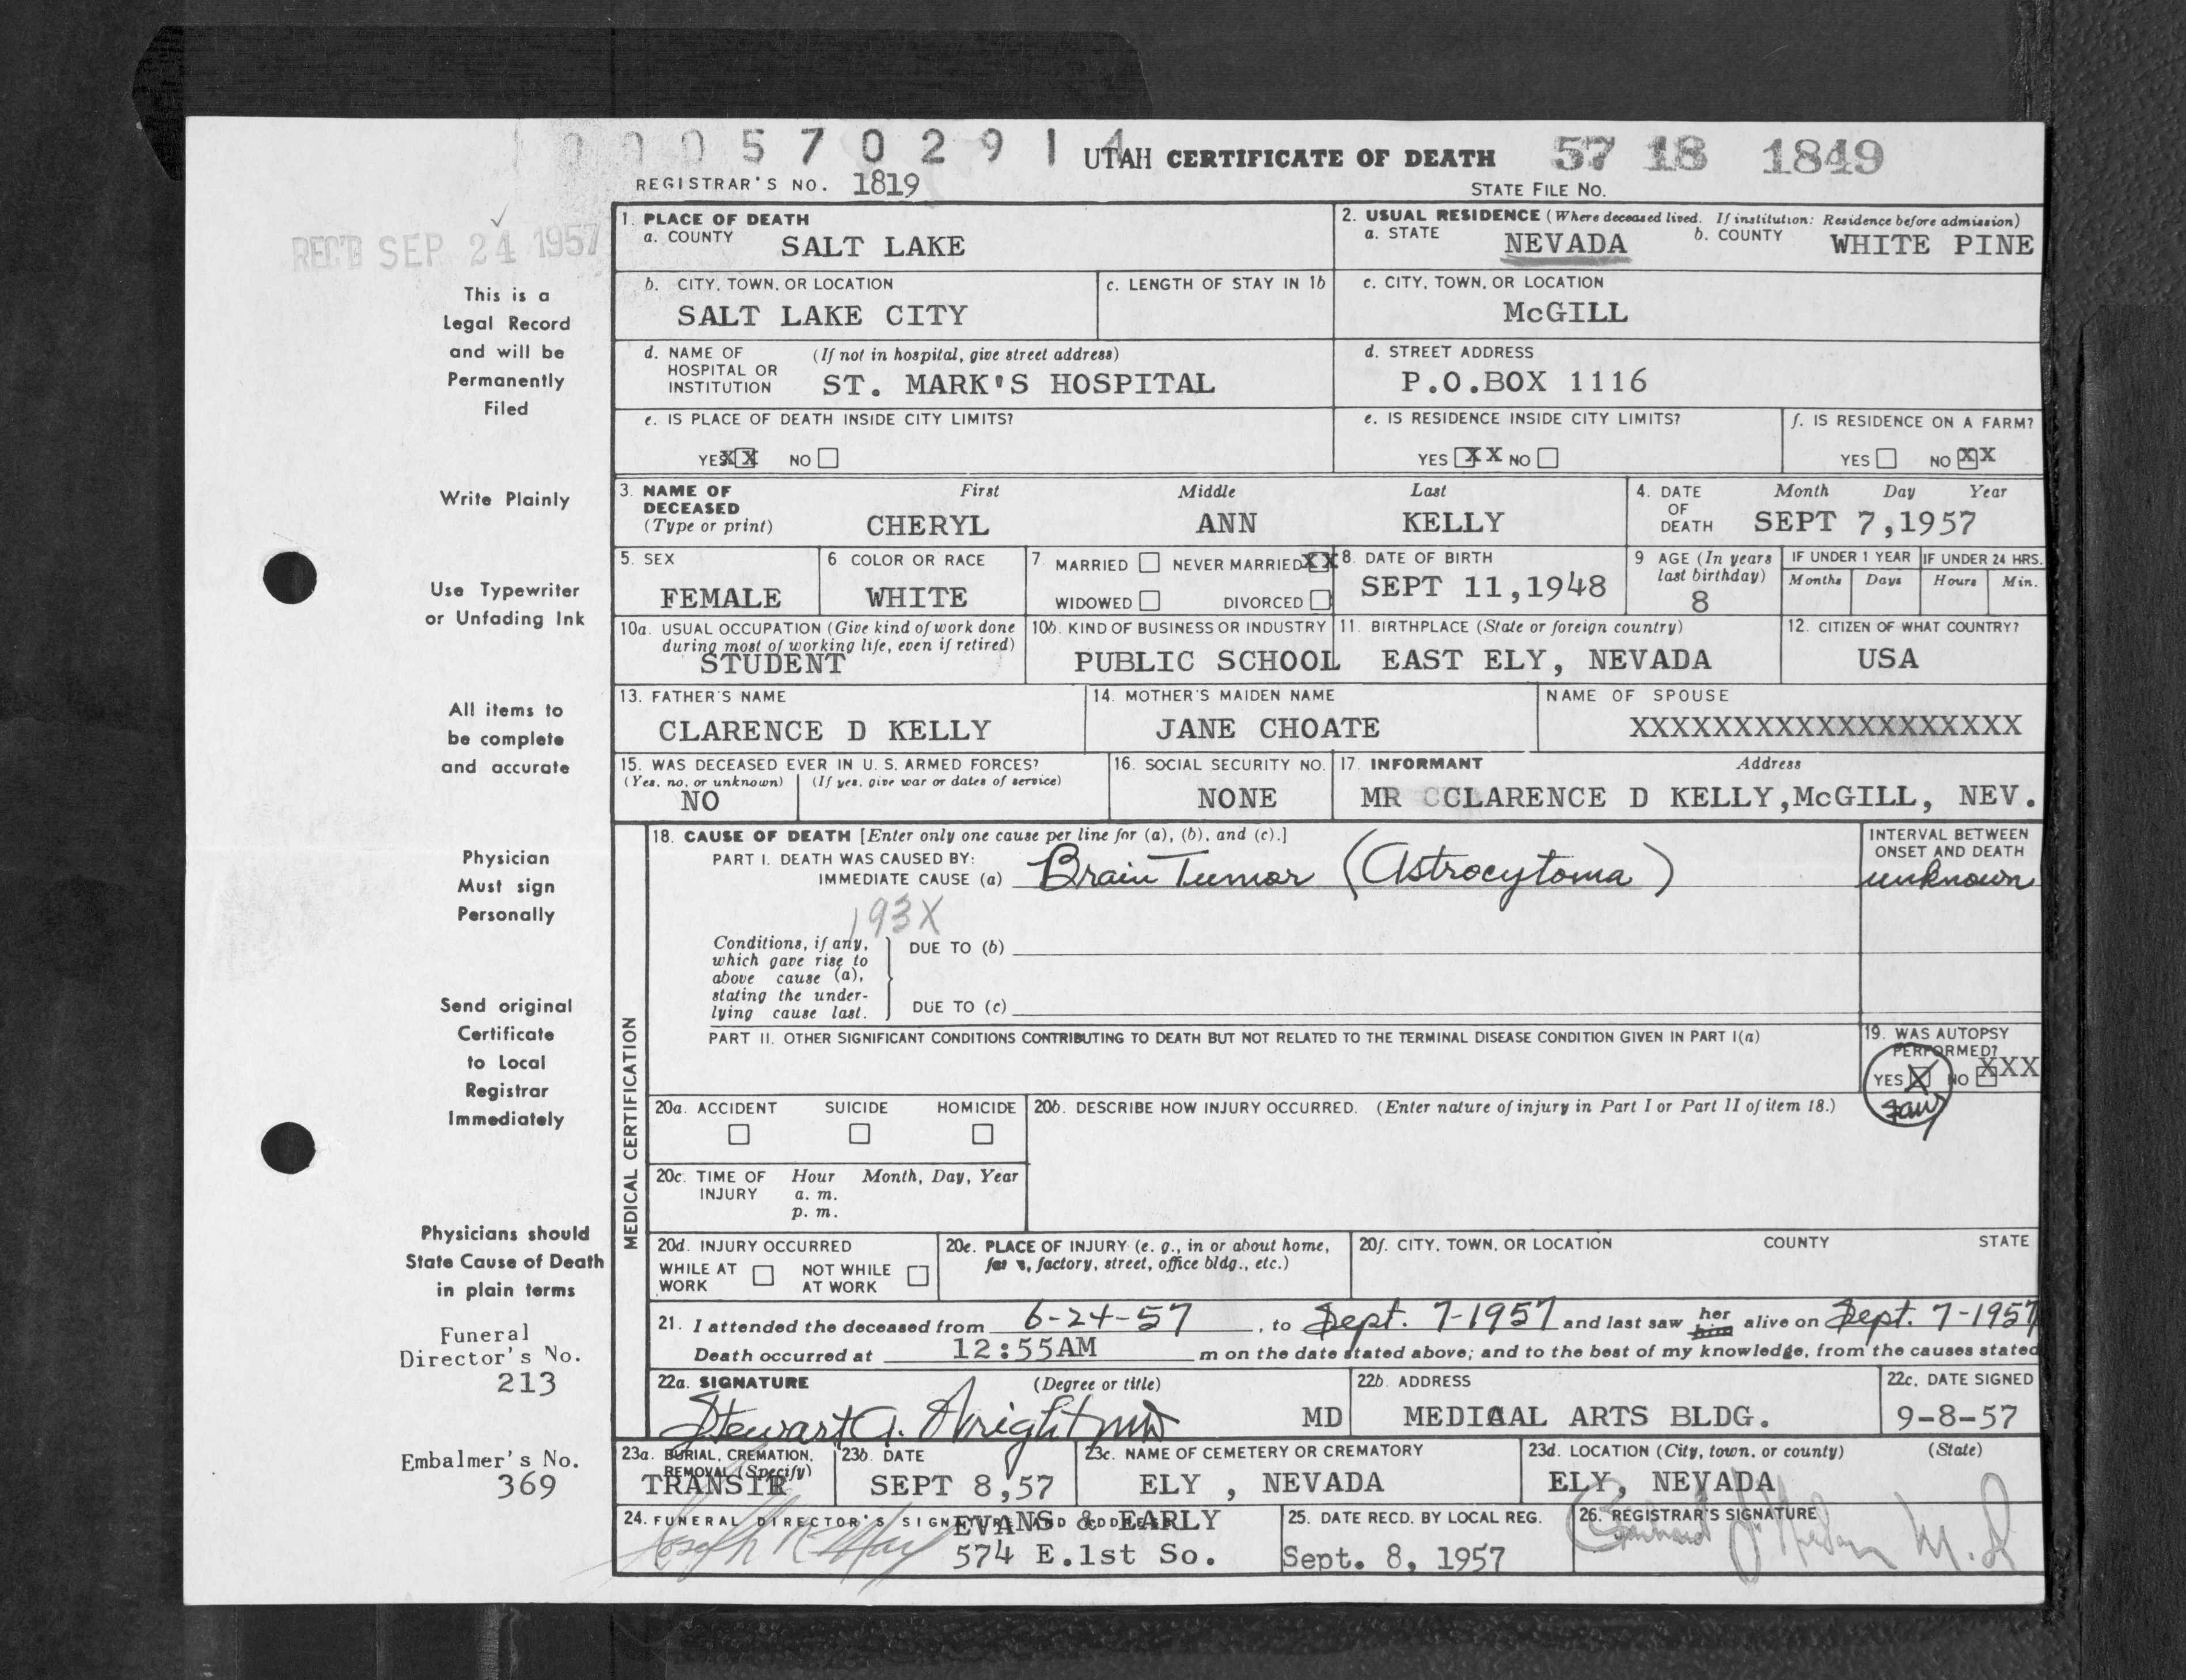 0 0 0 5 7 0 2 9 1 4 UTAH CERTIFICATE OF DEATH 57 18 1849
REGISTRAR'S NO. 1819 STATE FILE NO.
REC'D SEP 24 1957
This is a
Legal Record
and will be
Permanently
Filed
Write Plainly
Use Typewriter
or Unfading Ink
All items to
be complete
and accurate
Physician
Must sign
Personally
Send original
Certificate
to Local
Registrar
Immediately
Physicians should
State Cause of Death
in plain terms
Funeral
Director's No.
213
Embalmer's No.
369
1. PLACE OF DEATH
a. COUNTY SALT LAKE
2. USUAL RESIDENCE (Where deceased lived. If institution: Residence before admission)
a. STATE NEVADA b. COUNTY WHITE PINE
b. CITY, TOWN, OR LOCATION
SALT LAKE CITY
c. LENGTH OF STAY IN 1b
c. CITY, TOWN, OR LOCATION
McGILL
d. NAME OF (If not in hospital, give street address)
HOSPITAL OR
INSTITUTION ST. MARK'S HOSPITAL
d. STREET ADDRESS
P.O.BOX 1116
e. IS PLACE OF DEATH INSIDE CITY LIMITS?
YES XX NO
e. IS RESIDENCE INSIDE CITY LIMITS?
YES XX NO
f. IS RESIDENCE ON A FARM?
YES NO XX
3. NAME OF First Middle Last
DECEASED
(Type or print) CHERYL ANN KELLY
4. DATE Month Day Year
OF
DEATH SEPT 7,1957
5. SEX
FEMALE
6 COLOR OR RACE
WHITE
7. MARRIED NEVER MARRIED XX
WIDOWED DIVORCED
8. DATE OF BIRTH
SEPT 11,1948
9 AGE (In years
last birthday)
8
IF UNDER 1 YEAR IF UNDER 24 HRS.
Months Days Hours Min.
10a. USUAL OCCUPATION (Give kind of work done
during most of working life, even if retired)
STUDENT
10b. KIND OF BUSINESS OR INDUSTRY
PUBLIC SCHOOL
11. BIRTHPLACE (State or foreign country)
EAST ELY, NEVADA
12. CITIZEN OF WHAT COUNTRY?
USA
13. FATHER'S NAME
CLARENCE D KELLY
14. MOTHER'S MAIDEN NAME
JANE CHOATE
NAME OF SPOUSE
XXXXXXXXXXXXXXXXXXX
15. WAS DECEASED EVER IN U. S. ARMED FORCES?
(Yes, no, or unknown) (If yes, give war or dates of service)
NO
16. SOCIAL SECURITY NO.
NONE
17. INFORMANT Address
MR CCLARENCE D KELLY,McGILL, NEV.
MEDICAL CERTIFICATION
18. CAUSE OF DEATH [Enter only one cause per line for (a), (b), and (c).]
PART I. DEATH WAS CAUSED BY:
IMMEDIATE CAUSE (a) Brain Tumor (Astrocytoma)
INTERVAL BETWEEN
ONSET AND DEATH
unknown
193X
Conditions, if any,
which gave rise to
above cause (a),
stating the under-
lying cause last.
DUE TO (b)
DUE TO (c)
PART II. OTHER SIGNIFICANT CONDITIONS CONTRIBUTING TO DEATH BUT NOT RELATED TO THE TERMINAL DISEASE CONDITION GIVEN IN PART I(a)
19. WAS AUTOPSY
PERFORMED?
YES X NO XXX
20a. ACCIDENT SUICIDE HOMICIDE
20b. DESCRIBE HOW INJURY OCCURRED. (Enter nature of injury in Part I or Part II of item 18.)
20c. TIME OF Hour Month, Day, Year
INJURY a. m.
p. m.
20d. INJURY OCCURRED
WHILE AT NOT WHILE
WORK AT WORK
20e. PLACE OF INJURY (e. g., in or about home,
factory, street, office bldg., etc.)
20f. CITY, TOWN, OR LOCATION COUNTY STATE
21. I attended the deceased from 6-24-57, to Sept. 7-1957 and last saw her him alive on Sept. 7-1957
Death occurred at 12:55AM m on the date stated above; and to the best of my knowledge, from the causes stated
22a. SIGNATURE (Degree or title)
Stewart A. Wright MD MD
22b. ADDRESS
MEDICAL ARTS BLDG.
22c. DATE SIGNED
9-8-57
23a. BURIAL, CREMATION,
REMOVAL (Specify)
TRANSIT
23b. DATE
SEPT 8,57
23c. NAME OF CEMETERY OR CREMATORY
ELY , NEVADA
23d. LOCATION (City, town, or county) (State)
ELY, NEVADA
24. FUNERAL DIRECTOR'S SIGNATURE AND ADDRESS
EVANS & EARLY
574 E.1st So.
25. DATE RECD. BY LOCAL REG.
Sept. 8, 1957
26. REGISTRAR'S SIGNATURE